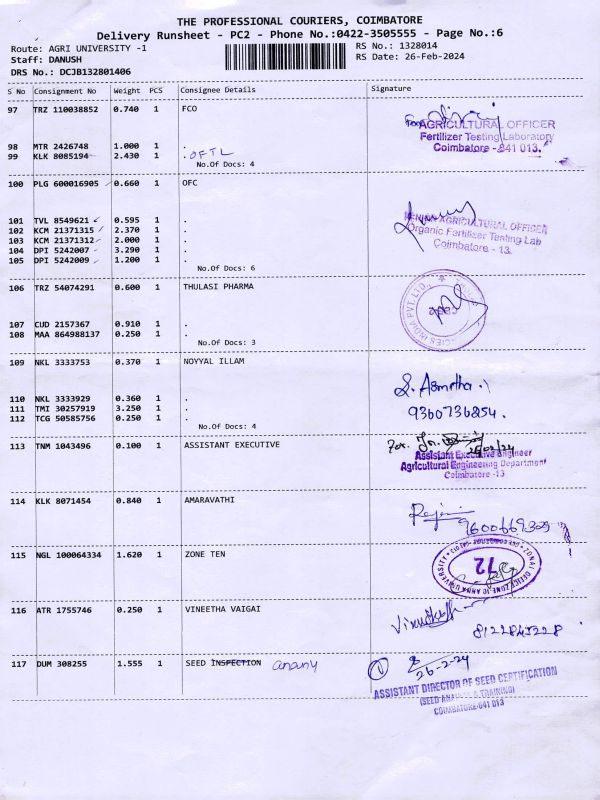 THE PROFESSIONAL COURIERS, COIMBATORE
Delivery Runsheet - PC2 - Phone No.:0422-3505555 - Page No.:6
Route: AGRI UNIVERSITY -1
RS No.: 1328014
Staff: DANUSH
RS Date: 26-Feb-2024
DRS No.: DCJB132801406
S No Consignment No Weight PCS Consignee Details Signature
97 TRZ 110038852 0.740 1 FCO
For AGRICULTURAL OFFICER
Fertilizer Testing Laboratory
Coimbatore - 641 013.
98 MTR 2426748 1.000 1 .
99 KLK 8085194 2.430 1 . OFTL
No.Of Docs: 4
100 PLG 600016905 0.660 1 OFC
SENIOR AGRICULTURAL OFFICER
Organic Fertilizer Testing Lab
Coimbatore - 13.
101 TVL 8549621 0.595 1 .
102 KCM 21371315 2.370 1 .
103 KCM 21371312 2.000 1 .
104 DPI 5242007 3.290 1 .
105 DPI 5242009 1.200 1 .
No.Of Docs: 6
106 TRZ 54074291 0.600 1 THULASI PHARMA
107 CUD 2157367 0.910 1 .
108 MAA 864988137 0.250 1 .
No.Of Docs: 3
109 NKL 3333753 0.370 1 NOYYAL ILLAM
110 NKL 3333929 0.360 1 .
111 TMI 30257919 3.250 1 .
112 TCG 50585756 0.250 1 .
No.Of Docs: 4
S. Asmitha
9360736854.
113 TNM 1043496 0.100 1 ASSISTANT EXECUTIVE
For
26/02/24
Assistant Executive Engineer
Agricultural Engineering Department
Coimbatore -13
114 KLK 8071454 0.840 1 AMARAVATHI
9600669309
115 NGL 100064334 1.620 1 ZONE TEN
72
116 ATR 1755746 0.250 1 VINEETHA VAIGAI
8122843228
117 DUM 308255 1.555 1 SEED INSPECTION anany
1
26-2-24
ASSISTANT DIRECTOR OF SEED CERTIFICATION
COIMBATORE-641 013